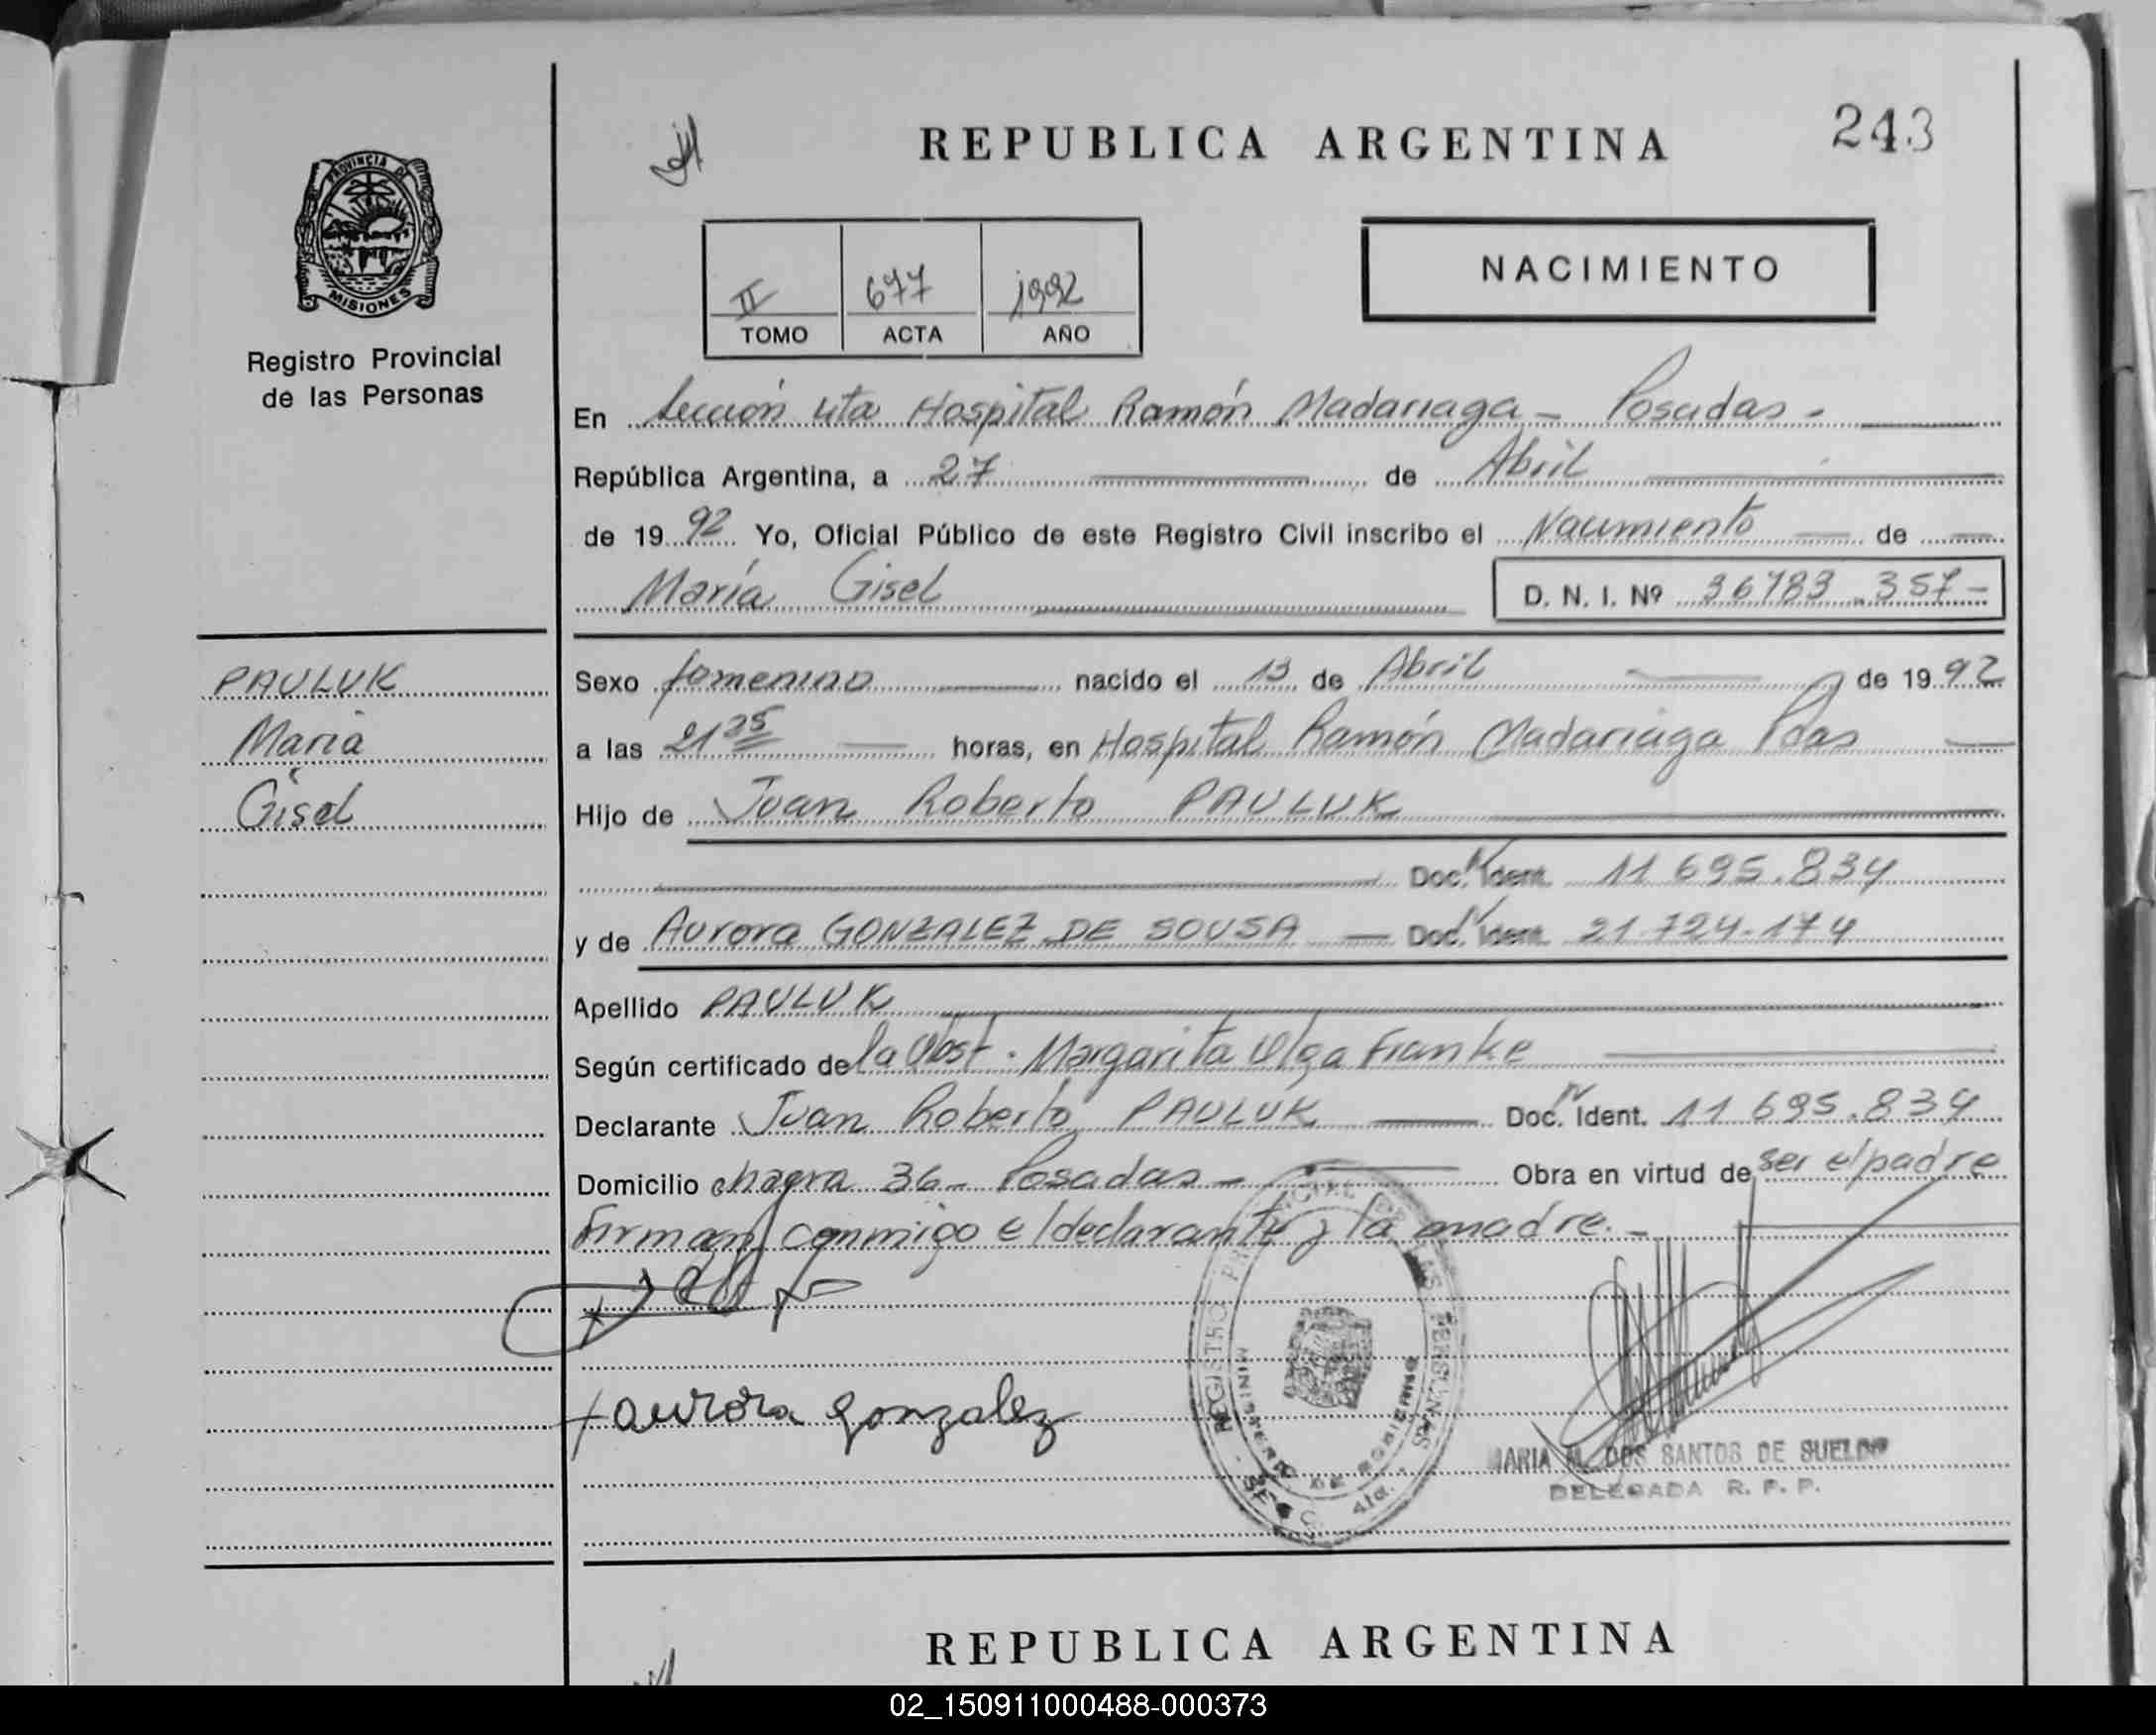 REPUBLICA ARGENTINA
243
PROVINCIA DE
MISIONES
Registro Provincial
de las Personas
II 677 1992
TOMO ACTA AÑO
NACIMIENTO
En Sección 4ta Hospital Ramón Madariaga - Posadas -
República Argentina, a 27 de Abril
de 19 92 Yo, Oficial Público de este Registro Civil inscribo el Nacimiento de
María Gisel D. N. I. Nº 36783 357-
PAULUK
Maria
Gisel
Sexo femenino nacido el 13 de Abril de 19 92
a las 21 35 horas, en Hospital Ramón Madariaga Pdas
Hijo de Juan Roberto PAULUK
Doc. Ident. 11 695.834
y de Aurora GONZALEZ DE SOUSA — Doc. Ident. 21 724.174
Apellido PAULUK
Según certificado de la Obst. Margarita Olga Franke
Declarante Juan Roberto PAULUK Doc. Ident. 11 695.834
Domicilio chagra 36 - Posadas - Obra en virtud de ser el padre
Firman conmigo el declarante y la madre. -
Aurora Gonzalez
REGISTRO PROVINCIAL DE LAS PERSONAS
MINISTERIO DE GOBIERNO
4ta.
MARIA M. DOS SANTOS DE SUELDO
DELEGADA R. P. P.
REPUBLICA ARGENTINA
02_150911000488-000373